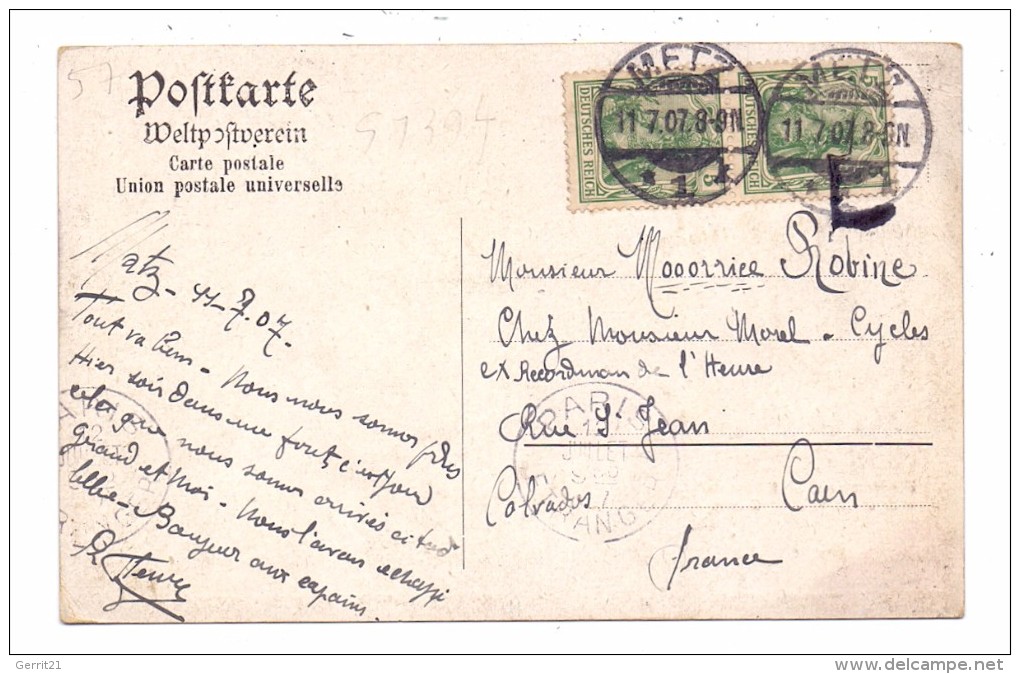 57
Postkarte
Weltpostverein
Carte postale
Union postale universelle
57394
METZ
11.7.07.8-9N
* 1. k
METZ
11.7.07.8-9N
DEUTSCHES REICH
5
DEUTSCHES REICH
5
Metz - 11-7.07-
Tout va bien - Nous nous sommes
Hier soir dans une
que nous sommes arrivés
Giraud et Moi - Nous l'avons échappé
belle - Bonjour aux copains.
Monsieur Mooorrice Robine
Chez Monsieur Morel - Cycles
ex Recordman de l'Heure
Rue St Jean
Calvados Caen
France
PARIS
JUILLET
ETRANGER
Gerrit21
www.delcampe.net